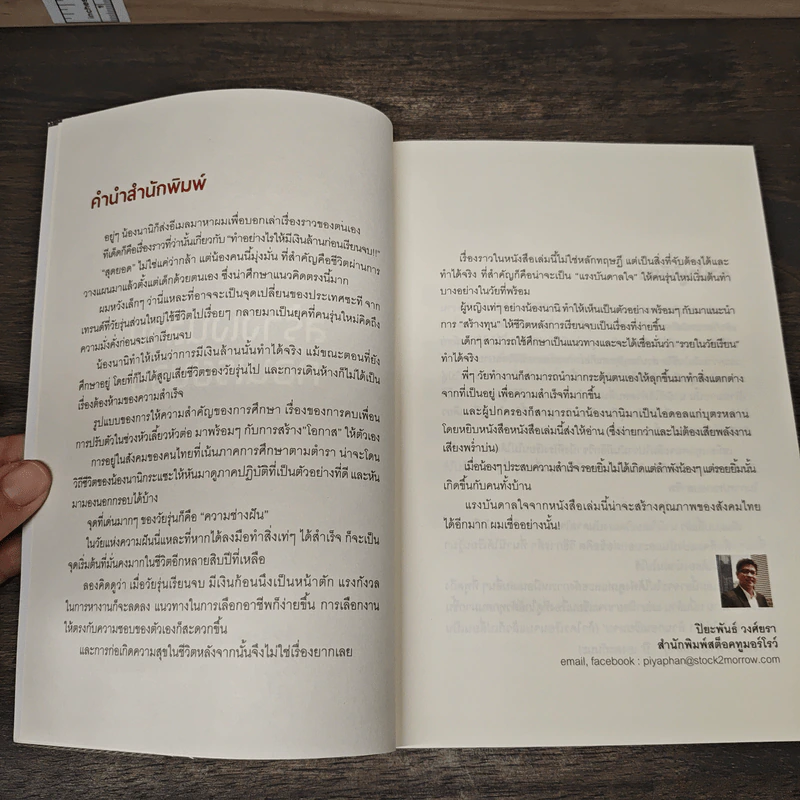 inches
คำนำสำนักพิมพ์
อยู่ๆ น้องนานิก็ส่งอีเมลมาหาผมเพื่อบอกเล่าเรื่องราวของตนเอง
ที่เด็ดก็คือเรื่องราวที่ว่านั้นเกี่ยวกับ "ทำอย่างไรให้มีเงินล้านก่อนเรียนจบ!!"
"สุดยอด" ไม่ใช่แค่ว่ากล้า แต่น้องคนนี้มุ่งมั่น ที่สำคัญคือชีวิตผ่านการ
วางแผนมาแล้วตั้งแต่เด็กด้วยตนเอง ซึ่งน่าศึกษาแนวคิดตรงนี้มาก
ผมหวังเล็กๆ ว่านี่แหละที่อาจจะเป็นจุดเปลี่ยนของประเทศซะที จาก
เทรนด์ที่วัยรุ่นส่วนใหญ่ใช้ชีวิตไปเรื่อยๆ กลายมาเป็นยุคที่คนรุ่นใหม่คิดถึง
ความมั่งคั่งก่อนจะเล่าเรียนจบ
น้องนานิทำให้เห็นว่าการมีเงินล้านนั้นทำได้จริง แม้ขณะตอนที่ยัง
ศึกษาอยู่ โดยที่ก็ไม่ได้สูญเสียชีวิตของวัยรุ่นไป และการเดินห้างก็ไม่ได้เป็น
เรื่องต้องห้ามของความสำเร็จ
รูปแบบของการให้ความสำคัญของการศึกษา เรื่องของการคบเพื่อน
การปรับตัวในช่วงหัวเลี้ยวหัวต่อ มาพร้อมๆ กับการสร้าง"โอกาส" ให้ตัวเอง
การอยู่ในสังคมของคนไทยที่เน้นภาคการศึกษาตามตำรา น่าจะโดน
วิถีชีวิตของน้องนานิกระแซะให้หันมาดูภาคปฏิบัติที่เป็นตัวอย่างที่ดี และหัน
มามองนอกกรอบได้บ้าง
จุดที่เด่นมากๆ ของวัยรุ่นก็คือ "ความช่างฝัน"
ในวัยแห่งความฝันนี่แหละที่หากได้ลงมือทำสิ่งเท่ๆ ได้สำเร็จ ก็จะเป็น
จุดเริ่มต้นที่มั่นคงมากในชีวิตอีกหลายสิบปีที่เหลือ
ลองคิดดูว่า เมื่อวัยรุ่นเรียนจบ มีเงินก้อนนึงเป็นหน้าตัก แรงกังวล
ในการหางานก็จะลดลง แนวทางในการเลือกอาชีพก็ง่ายขึ้น การเลือกงาน
ให้ตรงกับความชอบของตัวเองก็สะดวกขึ้น
และการก่อเกิดความสุขในชีวิตหลังจากนั้นจึงไม่ใช่เรื่องยากเลย
เรื่องราวในหนังสือเล่มนี้ไม่ใช่หลักทฤษฎี แต่เป็นสิ่งที่จับต้องได้และ
ทำได้จริง ที่สำคัญก็คือน่าจะเป็น "แรงบันดาลใจ" ให้คนรุ่นใหม่เริ่มต้นทำ
บางอย่างในวัยที่พร้อม
ผู้หญิงเท่ๆ อย่างน้องนานิ ทำให้เห็นเป็นตัวอย่าง พร้อมๆ กับมาแนะนำ
การ "สร้างทุน" ให้ชีวิตหลังการเรียนจบเป็นเรื่องที่ง่ายขึ้น
เด็กๆ สามารถใช้ศึกษาเป็นแนวทางและจะได้เชื่อมั่นว่า "รวยในวัยเรียน"
ทำได้จริง
พี่ๆ วัยทำงานก็สามารถนำมากระตุ้นตนเองให้ลุกขึ้นมาทำสิ่งแตกต่าง
จากที่เป็นอยู่ เพื่อความสำเร็จที่มากขึ้น
และผู้ปกครองก็สามารถนำน้องนานิมาเป็นไอดอลแก่บุตรหลาน
โดยหยิบหนังสือหนังสือเล่มนี้ส่งให้อ่าน (ซึ่งง่ายกว่าและไม่ต้องเสียพลังงาน
เสียงพร่ำบ่น)
เมื่อน้องๆ ประสบความสำเร็จ รอยยิ้มไม่ได้เกิดแต่ลำพังน้องๆ แต่รอยยิ้มนั้น
เกิดขึ้นกับคนทั้งบ้าน
แรงบันดาลใจจากหนังสือเล่มนี้น่าจะสร้างคุณภาพของสังคมไทย
ได้อีกมาก ผมเชื่ออย่างนั้น!
ปิยะพันธ์ วงศ์ยรา
สำนักพิมพ์สต็อคทูมอร์โรว์
email, facebook : piyaphan@stock2morrow.com